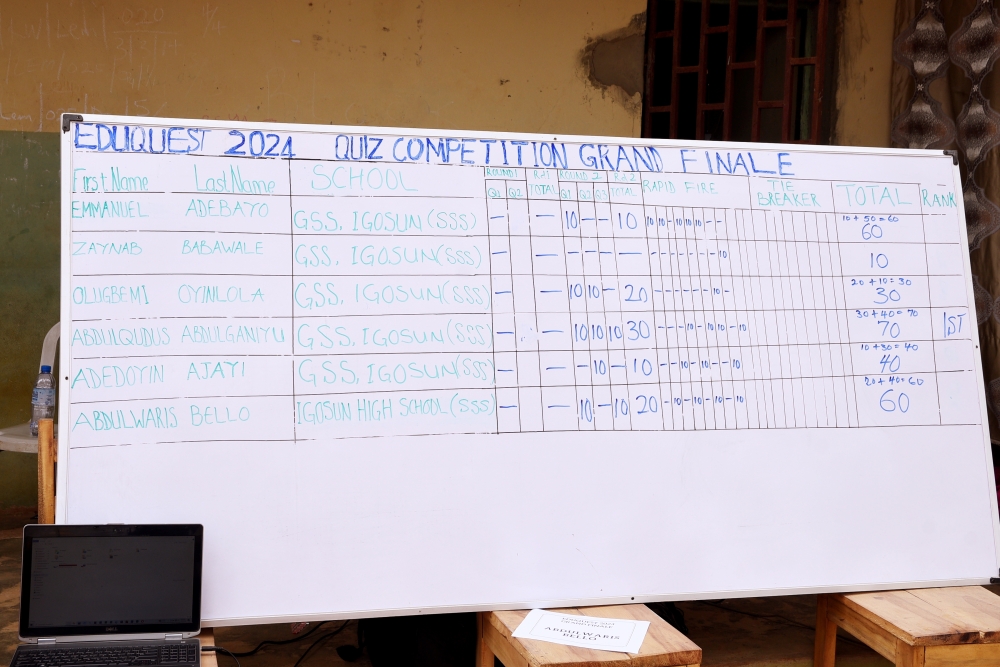 EDUQUEST 2024 QUIZ COMPETITION GRAND FINALE
First Name Last Name SCHOOL ROUND 1 RD1 ROUND 2 RD 2 RAPID FIRE TIE TOTAL RANK
Q1 Q2 TOTAL Q1 Q2 Q3 TOTAL BREAKER
EMMANUEL ADEBAYO GSS, IGOSUN (SSS) — — 10 — — 10 10 10 — 10 10 10 — — 10 + 50 = 60
60
ZAYNAB BABAWALE GSS, IGOSUN (SSS) — — — — — — — — — — — — — 10 10
OLUGBEMI OYINLOLA GSS, IGOSUN (SSS) — — 10 10 — 20 — — — — — — 10 — 20 + 10 = 30
30
ABDULQUDUS ABDULGANIYU GSS, IGOSUN (SSS) — — 10 10 10 30 — — — 10 — 10 — 10 — 10 30 + 40 = 70
70 1ST
ADEDOYIN AJAYI GSS, IGOSUN (SSS) — — — 10 — 10 — 10 — — 10 — — 10 10 + 30 = 40
40
ABDULWARIS BELLO IGOSUN HIGH SCHOOL (SSS) — — 10 — 10 20 — 10 — 10 — 10 — 10 20 + 40 = 60
60
ABDULWARIS
BELLO